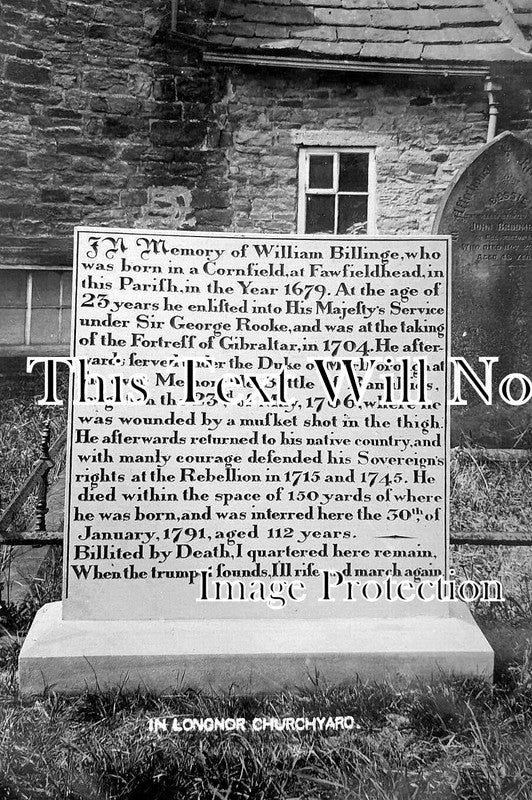 In Memory of William Billinge, who
was born in a Cornfield, at Fawfieldhead, in
this Pariſh, in the Year 1679. At the age of
23 years he enliſted into His Majeſty's Service
under Sir George Rooke, and was at the taking
of the Fortreſs of Gibraltar, in 1704. He after-
wards ſerved under the Duke of at
This Text Will No
of
23rd of May, 1706, where he
was wounded by a muſket shot in the thigh.
He afterwards returned to his native country, and
with manly courage defended his Sovereign's
rights at the Rebellion in 1715 and 1745. He
died within the space of 150 yards of where
he was born, and was interred here the 30th, of
January, 1791, aged 112 years.
Billited by Death, I quartered here remain,
When the trumpet ſounds, I'll riſe and march again.
Image Protection
IN LONGNOR CHURCHYARD.
JOHN